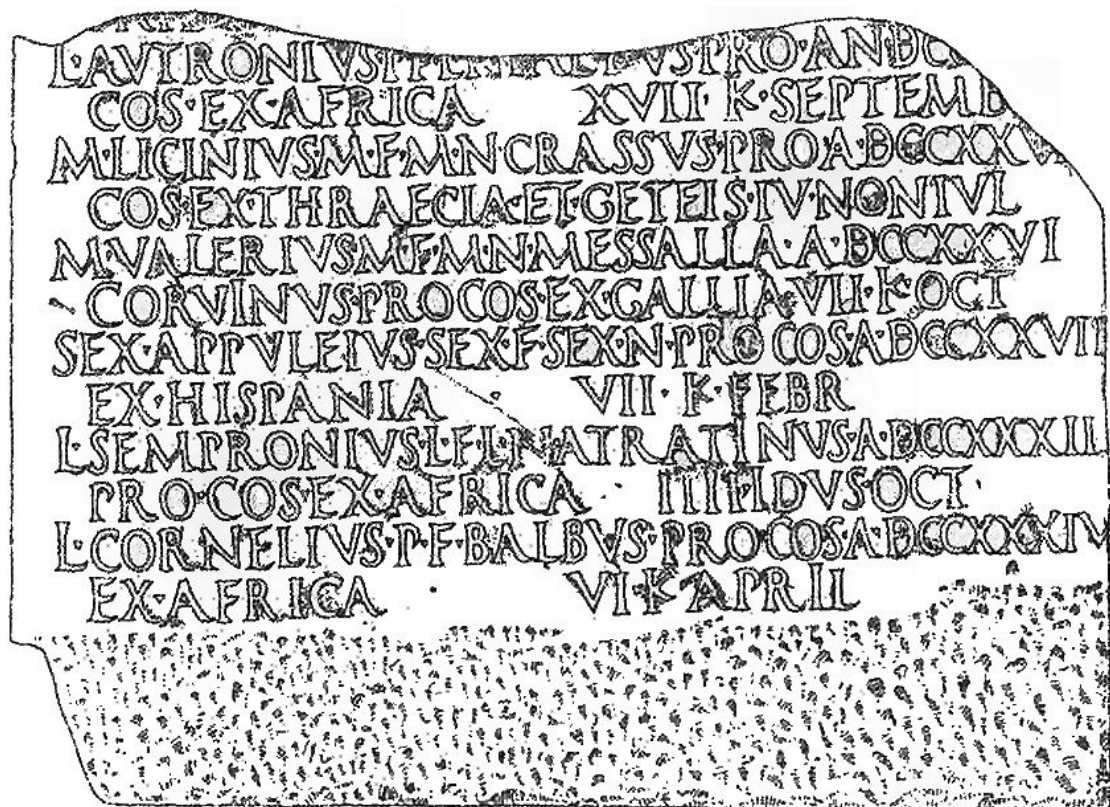 L·AVTRONIVS·P·F·L·N· PRO·AN·DCC
COS·EX·AFRICA XVII·K·SEPTEMB
M·LICINIVS·M·F·M·N·CRASSVS·PRO·A·DCCXXVI
COS·EX·THRAECIA·ET·GETEIS·IV·NON·IVL
M·VALERIVS·M·F·M·N·MESSALLA·A·DCCXXVI
CORVINVS·PRO·COS·EX·GALLIA·VII·K·OCT
SEX·APPVLEIVS·SEX·F·SEX·N·PRO COS·A·DCCXXVII
EX·HISPANIA VII·K·FEBR
L·SEMPRONIVS·L·F·L·N·ATRATINVS·A·DCCXXXII
PRO·COS·EX·AFRICA IIII·IDVS·OCT
L·CORNELIVS·P·F·BALBVS·PRO·COS·A·DCCXXXIV
EX·AFRICA VI·K·APRIL